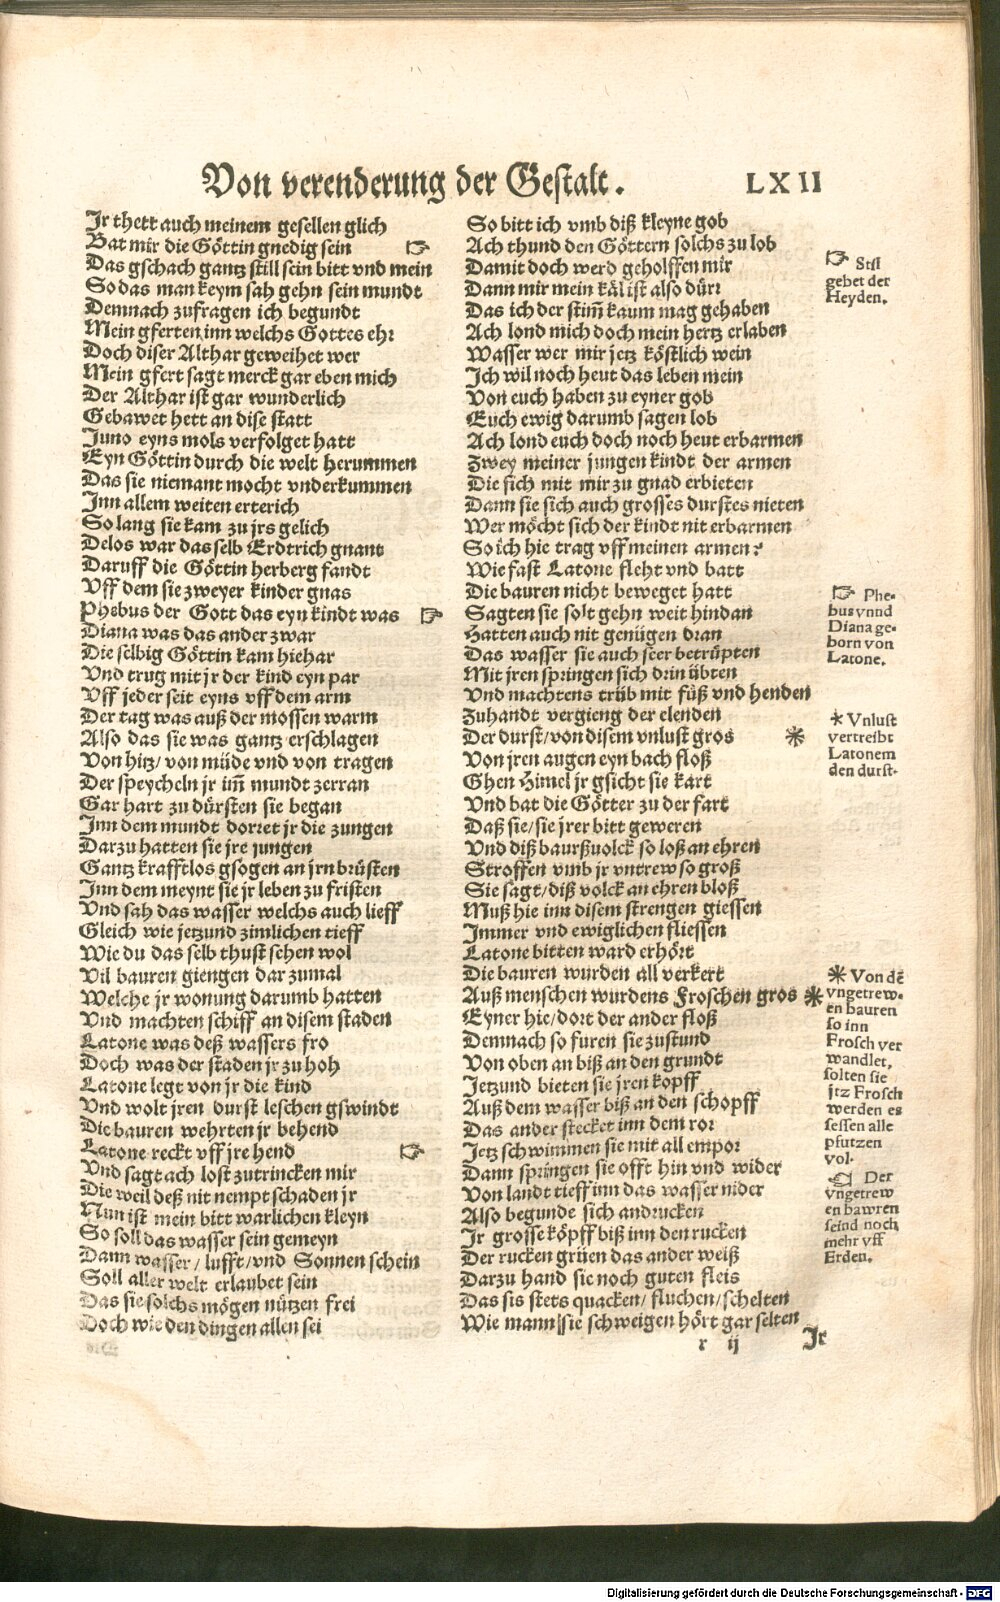 Von verenderung der Gestalt. LXII
Jr thett auch meinem gesellen glich
Bat mir die Göttin gnedig sein ☞
Das gschach gantz still sein bitt vnd mein
So das man keym sah gehn sein mundt
Demnach zufragen ich begundt
Mein gferten inn welchs Gottes ehr
Doch diser Althar geweihet wer
Mein gfert sagt merck gar eben mich
Der Althar ist gar wunderlich
Gebawet hett an dise statt
Juno eyns mols verfolget hatt
Eyn Göttin durch die welt herummen
Das sie niemant mocht vnderkummen
Inn allem weiten erterich
So lang sie kam zu jrs gelich
Delos war das selb Erdtrich gnant
Daruff die Göttin herberg fandt
Vff dem sie zweyer kinder gnas
Phebus der Gott das eyn kindt was ☞
Diana was das ander zwar
Die selbig Göttin kam hiehar
Vnd trug mit jr der kind eyn par
Vff jeder seit eyns vff dem arm
Der tag was auß der mossen warm
Also das sie was gantz erschlagen
Von hitz/ von müde vnd von tragen
Der speycheln jr im̃ mundt zerran
Gar hart zu dürsten sie began
Inn dem mundt dorret jr die zungen
Darzu hatten sie jre jungen
Gantz krafftlos gsogen an jrn brüsten
Inn dem meynt sie jr leben zu fristen
Vnd sah das wasser welchs auch lieff
Gleich wie jetzund zimlichen tieff
Wie du das selb thust sehen wol
Vil bauren giengen dar zumal
Welche jr wonung darumb hatten
Vnd machten schiff an disem staden
Latone was deß wassers fro
Doch was der staden jr zu hoh
Latone legt von jr die kind
Vnd wolt jren durst leschen gswindt
Die bauren wehrten jr behend
Latone reckt vff jre hend ☞
Vnd sagt ach lost zutrincken mir
Die weil deß nit nempt schaden jr
Nun ist mein bitt warlichen kleyn
So soll das wasser sein gemeyn
Dann wasser/ lufft/ vnd Sonnen schein
Soll aller welt erlaubet sein
Das sie solchs mögen nützen frei
Doch wie den dingen allen sei
So bitt ich vmb diß kleyne gob
Ach thund den Göttern solchs zu lob
Damit doch werd geholffen mir
Dann mir mein käl ist also dürr
Das ich der stim̃ kaum mag gehaben
Ach lond mich doch mein hertz erlaben
Wasser wer mir jetz köstlich wein
Ich wil noch heut das leben mein
Von euch haben zu eyner gob
Euch ewig darumb sagen lob
Ach lond euch doch noch heut erbarmen
Zwey meiner jungen kindt der armen
Die sich mit mir zu gnad erbieten
Dann sie sich auch grosses durstes nieten
Wer möcht sich der kindt nit erbarmen
So ich hie trag vff meinen armen?
Wie fast Latone fleht vnd batt
Die bauren nicht beweget hatt
Sagten sie solt gehn weit hindan
Hatten auch nit genügen dran
Das wasser sie auch seer betrüpten
Mit jren springen sich drin übten
Vnd machtens trüb mit füß vnd henden
Zuhandt vergieng der elenden
Der durst/ von disem vnlust gros *
Von jren augen eyn bach floß
Ghen Himel jr gsicht sie kart
Vnd bat die Götter zu der fart
Daß sie/ sie jrer bitt geweren
Vnd diß baurßuolck so loß an ehren
Stroffen vmb jr vntrew so groß
Sie sagt/ diß volck an ehren bloß
Muß hie inn disem strengen giessen
Immer vnd ewiglichen fliessen
Latone bitten ward erhört
Die bauren wurden all verkert
Auß menschen wurdens Froschen gros *
Eyner hie/ dort der ander floß
Demnach so furen sie zustund
Von oben an biß an den grundt
Jetzund bieten sie jren kopff
Auß dem wasser biß an den schopff
Das ander stecket inn dem ror
Jetz schwimmen sie mit all empor
Dann springen sie offt hin vnd wider
Von landt tieff inn das wasser nider
Also begunde sich andrucken
Jr grosse köpff biß inn den rucken
Der rucken grüen das ander weiß
Darzu hand sie noch guten fleis
Das sis stets quacken/ fluchen/ schelten
Wie mann sie schweigen hört gar selten
r ij Jr
☞ Stil
gebet der
Heyden.
☞ Phe-
bus vnnd
Diana ge-
born von
Latone.
* Vnlust
vertreibt
Latonem
den durst.
* Von dē
vngetrew-
en bauren
so inn
Frosch ver
wandlet,
solten sie
itz Frosch
werden es
sessen alle
pfutzen
vol.
☜ Der
vngetrew
en bawren
seind noch
mehr vff
Erden.
Digitalisierung gefördert durch die Deutsche Forschungsgemeinschaft - DFG